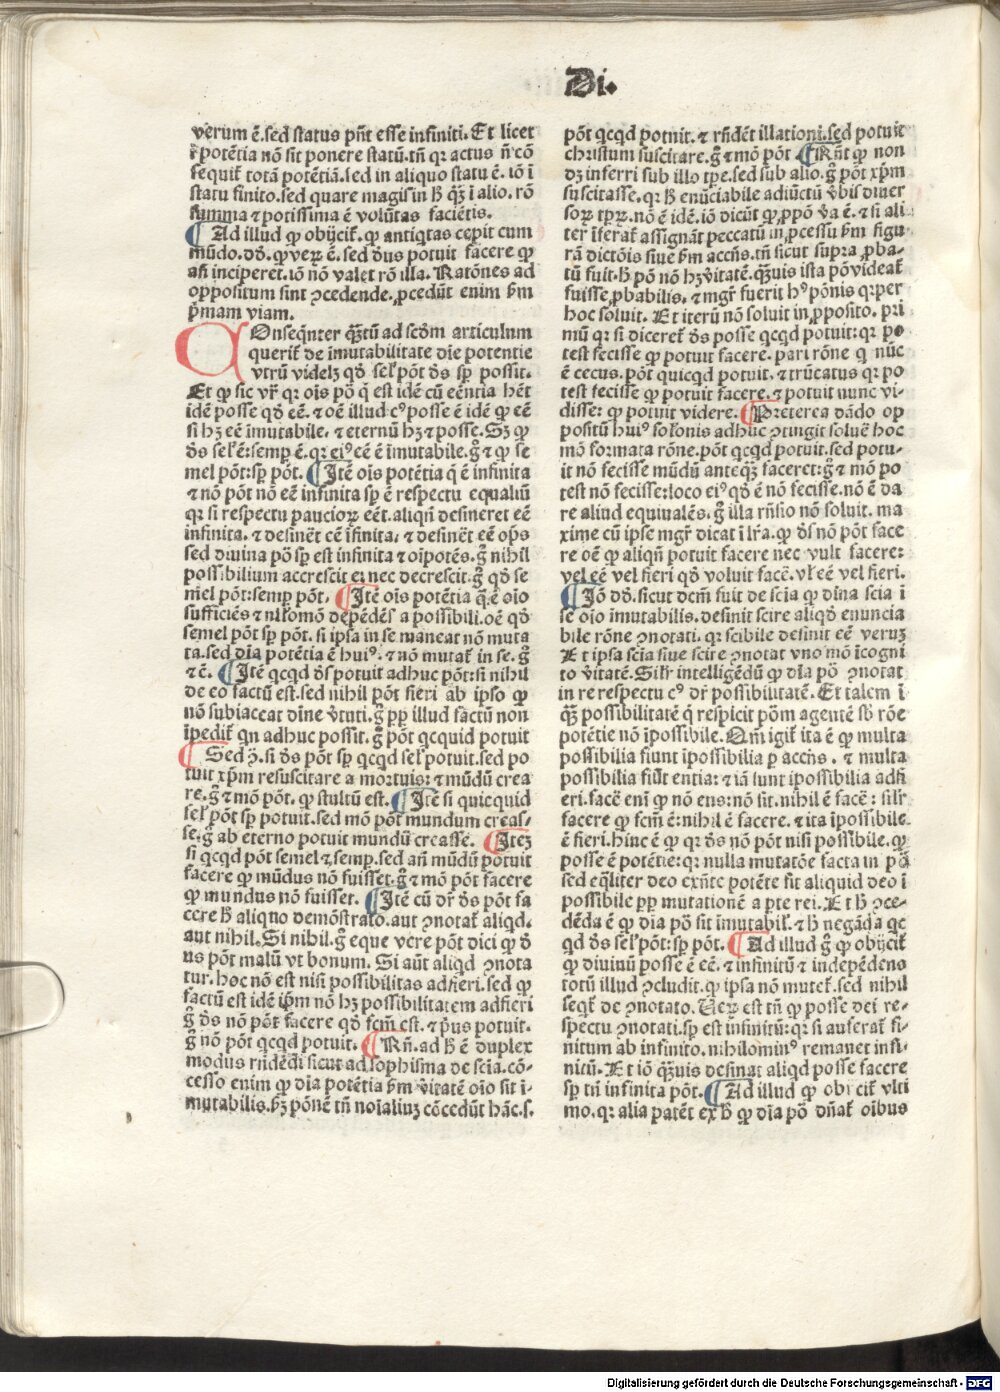 Di.
verum ē.sed status pñt esse infiniti.Et licet
ī potētia nō sit ponere statū.tñ qꝛ actus ñ cō
sequit̄ totā potētiā.sed in aliquo statu ē. iō ī
statu finito.sed quare magis in ħ q̄ꝫ ī alio. rō
summa ⁊ potissima ē volūtas faciētis.
¶ Ad illud ꝙ obijcit̄.ꝙ antiqtas cepit cum
mūdo.dō.ꝙ veꝝ ē.sed d̄us potuit facere ꝙ
añ inciperet.iō nō valet rō illa.Ratōnes ad
oppositum sint ꝯcedende.ꝓcedūt enim ẜm
p̄mam viam.
COnseq̄nter q̄ꝫtū ad scd̄m articulum
querit̄ de īmutabilitate die potentie
vtrū videlꝫ qd̄ sel̄ pōt d̄s sꝑ possit.
Et ꝙ sic vr̄ qꝛ ois pō q̄ est idē cū eēntia hēt
idē posse qd̄ eē.⁊ oē illud cꝰ posse ē idē ꝙ eē
si hꝫ eē īmutabile.⁊ eternū hꝫ ⁊ posse.Sꝫ ꝙ
d̄s sel̄ ē:semꝑ ē.qꝛ eiꝰ eē ē īmutabile.ḡ ⁊ ꝙ se
mel pōt:sꝑ pōt. ¶ Itē ois potētia q̄ ē infinita
⁊ nō pōt nō eē infinita sꝑ ē respectu equaliū
qꝛ si respectu paucioꝝ eēt.aliqñ desineret eē
infinita.⁊ desinēt eē īfinita.⁊ desinēt eē op̄s
sed diuina pō sꝑ est infinita ⁊ oīpotēs.ḡ nihil
possibilium accrescit ei nec decrescit.ḡ qd̄ se
mel pōt:semꝑ pōt. ¶ Itē ois potētia q̄ ē oīo
sufficiēs ⁊ nl̄lomō depēdēs a possibili.oē qd̄
semel pōt sꝑ pōt. si ipsa in se maneat nō muta
ta.sed dīa potētia ē huiꝰ.⁊ nō mutat̄ in se.ḡ
⁊ē. ¶ Itē qcqd d̄s potuit adhuc pōt:si nihil
de eo factū est.sed nihil pōt fieri ab ipso ꝙ
nō subiaceat dīne v̄tuti.ḡ ꝑp̄ illud factū non
īpedit̄ qn adhuc possit.ḡ pōt qcquid potuit
¶ Sed ꝯ.si d̄s pōt sꝑ qcqd sel̄ potuit.sed po
tuit xp̄m resuscitare a mortuis:⁊ mūdū crea
re.ḡ ⁊ mō pōt.ꝙ stultū est. ¶ Itē si quicquid
sel̄ pōt sꝑ potuit.sed mō pōt mundum creas⸗
se.ḡ ab eterno potuit mundū creasse. ¶ Iteꝫ
si qcqd pōt semel ⁊ semꝑ.sed añ mūdū potuit
facere ꝙ mūdus nō fuisset.ḡ ⁊ mō pōt facere
ꝙ mundus nō fuisset. ¶ Itē cū dr̄ d̄s pōt fa
cere ħ aliqno demōstrato.aut ꝯnotat̄ aliqd.
aut nihil.Si nihil.ḡ eque vere pōt dici ꝙ d̄
us pōt malū vt bonum. Si aūt aliqd ꝯnota
tur.hoc nō est nisi possibilitas ad fieri.sed ꝙ
factū est idē ip̄m nō hꝫ possibilitatem ad fieri
ḡ d̄s nō pōt facere qd̄ fcm̄ est.⁊ p̄us potuit.
ḡ nō pōt qcqd potuit. ¶ Rñ.ad ħ ē duplex
modus rñdēdi sicut ad sophisma de scīa.cō⸗
cesso enim ꝙ dīa potētia ẜm v̄itatē oīo sit ī⸗
mutabilis.hꝫ pōnē tñ noīaliuꝫ cōcedūt hāc.s.
pōt qcqd potuit.⁊ rñdēt illationi.sed potuit
christum suscitare.ḡ ⁊ mō pōt ¶ Rñt ꝙ non
dꝫ inferri sub illo tꝑe.sed sub alio.ḡ pōt xp̄m
suscitasse.qꝛ ħ enūciabile adiūctū v̄bis diuer
soꝝ tꝑꝝ.nō ē idē.iō dicūt ꝙ ꝓpō v̄a ē.⁊ si ali
ter īferat̄ assignāt peccatū in ꝓcessu ẜm figu
rā dictōis siue ẜm accn̄s.tñ sicut supra ꝓba⸗
tū fuit.ħ pō nō hꝫ v̄itatē.q̄ꝫuis ista pō videat̄
fuisse ꝓbabilis.⁊ mgr̄ fuerit hꝰ pōnis qꝛ per
hoc soluit. Et iterū nō soluit in ꝓposito. pri
mū qꝛ si diceret̄ d̄s posse qcqd potuit:qꝛ po
test fecisse ꝙ potuit facere.pari rōne q nūc
ē cecus.pōt quicqd potuit.⁊ trūcatus qꝛ po
test fecisse ꝙ potuit facere.⁊ potuit nunc vi⸗
disse:ꝙ potuit videre. ¶ Preterea dādo op
positū huiꝰ sol̄onis adhuc ꝯtingit soluē hoc
mō formata rōne.pōt qcqd potuit.sed potu⸗
it nō fecisse mūdū anteq̄ꝫ faceret:ḡ ⁊ mō po
test nō fecisse:loco eiꝰ qd̄ ē nō fecisse.nō ē da
re aliud equiualēs.ḡ illa rñsio nō soluit. ma
xime cū ipse mgr̄ dicat ī lr̄a.ꝙ d̄s nō pōt face
re oē ꝙ aliqñ potuit facere nec vult facere:
vel eē vel fieri qd̄ voluit facē.vl̄ eē vel fieri.
¶ Iō dō.sicut dcm̄ fuit de scīa ꝙ dīna scīa ī
se oīo īmutabilis.desinit scire aliqd enuncia
bile rōne ꝯnotati.qꝛ scibile desinit eē veruꝫ
Et ipsa scīa siue scire ꝯnotat vno mō īcogni
to v̄itatē.Silr̄ intelligēdū ꝙ dīa pō ꝯnotat
in re respectu cꝰ dr̄ possibilitatē.Et talem ī⸗
q̄ꝫ possibilitatē q̄ respicit pōm agentē sb̄ rōe
potētie nō īpossibile.Qm̄ igit̄ ita ē ꝙ multa
possibilia fiunt īpossibilia ꝑ accn̄s.⁊ multa
possibilia fiūt entia:⁊ iā sunt īpossibilia ad fi
eri.facē enī ꝙ nō ens:nō sit.nihil ē facē:silr̄
facere ꝙ fcm̄ ē:nihil ē facere.⁊ ita īpossibile
ē fieri.hinc ē ꝙ qꝛ d̄s nō pōt nisi possibile.ꝙ
posse ē potētie:qꝛ nulla mutatōe facta in pō
sed eq̄liter deo exñte potēte fit aliquid deo ī
possibile ꝑp̄ mutationē a pte rei.Et ħ ꝯce⸗
dēda ē ꝙ dīa pō sit īmutabil̄.⁊ ħ negāda qc
qd d̄s sel̄ pōt:sꝑ pōt. ¶ Ad illud ḡ ꝙ obijcit̄
ꝙ diuinū posse ē eē.⁊ infinitū ⁊ indepēdens
totū illud ꝯcludit.ꝙ ipsa nō mutet̄.sed nihil
seqt̄ de ꝯnotato.Veꝝ est tñ ꝙ posse dei re⸗
spectu ꝯnotati.sꝑ est infinitū:qꝛ si auferat̄ fi⸗
nitum ab infinito.nihilominꝰ remanet infi⸗
nitū.Et iō q̄ꝫuis desinat aliqd posse facere
sꝑ tñ infinita pōt. ¶ Ad illud ꝙ obijcit̄ vlti
mo.qꝛ alia patēt ex ħ ꝙ dīa pō dñat̄ oibus
Digitalisierung gefördert durch die Deutsche Forschungsgemeinschaft - DFG